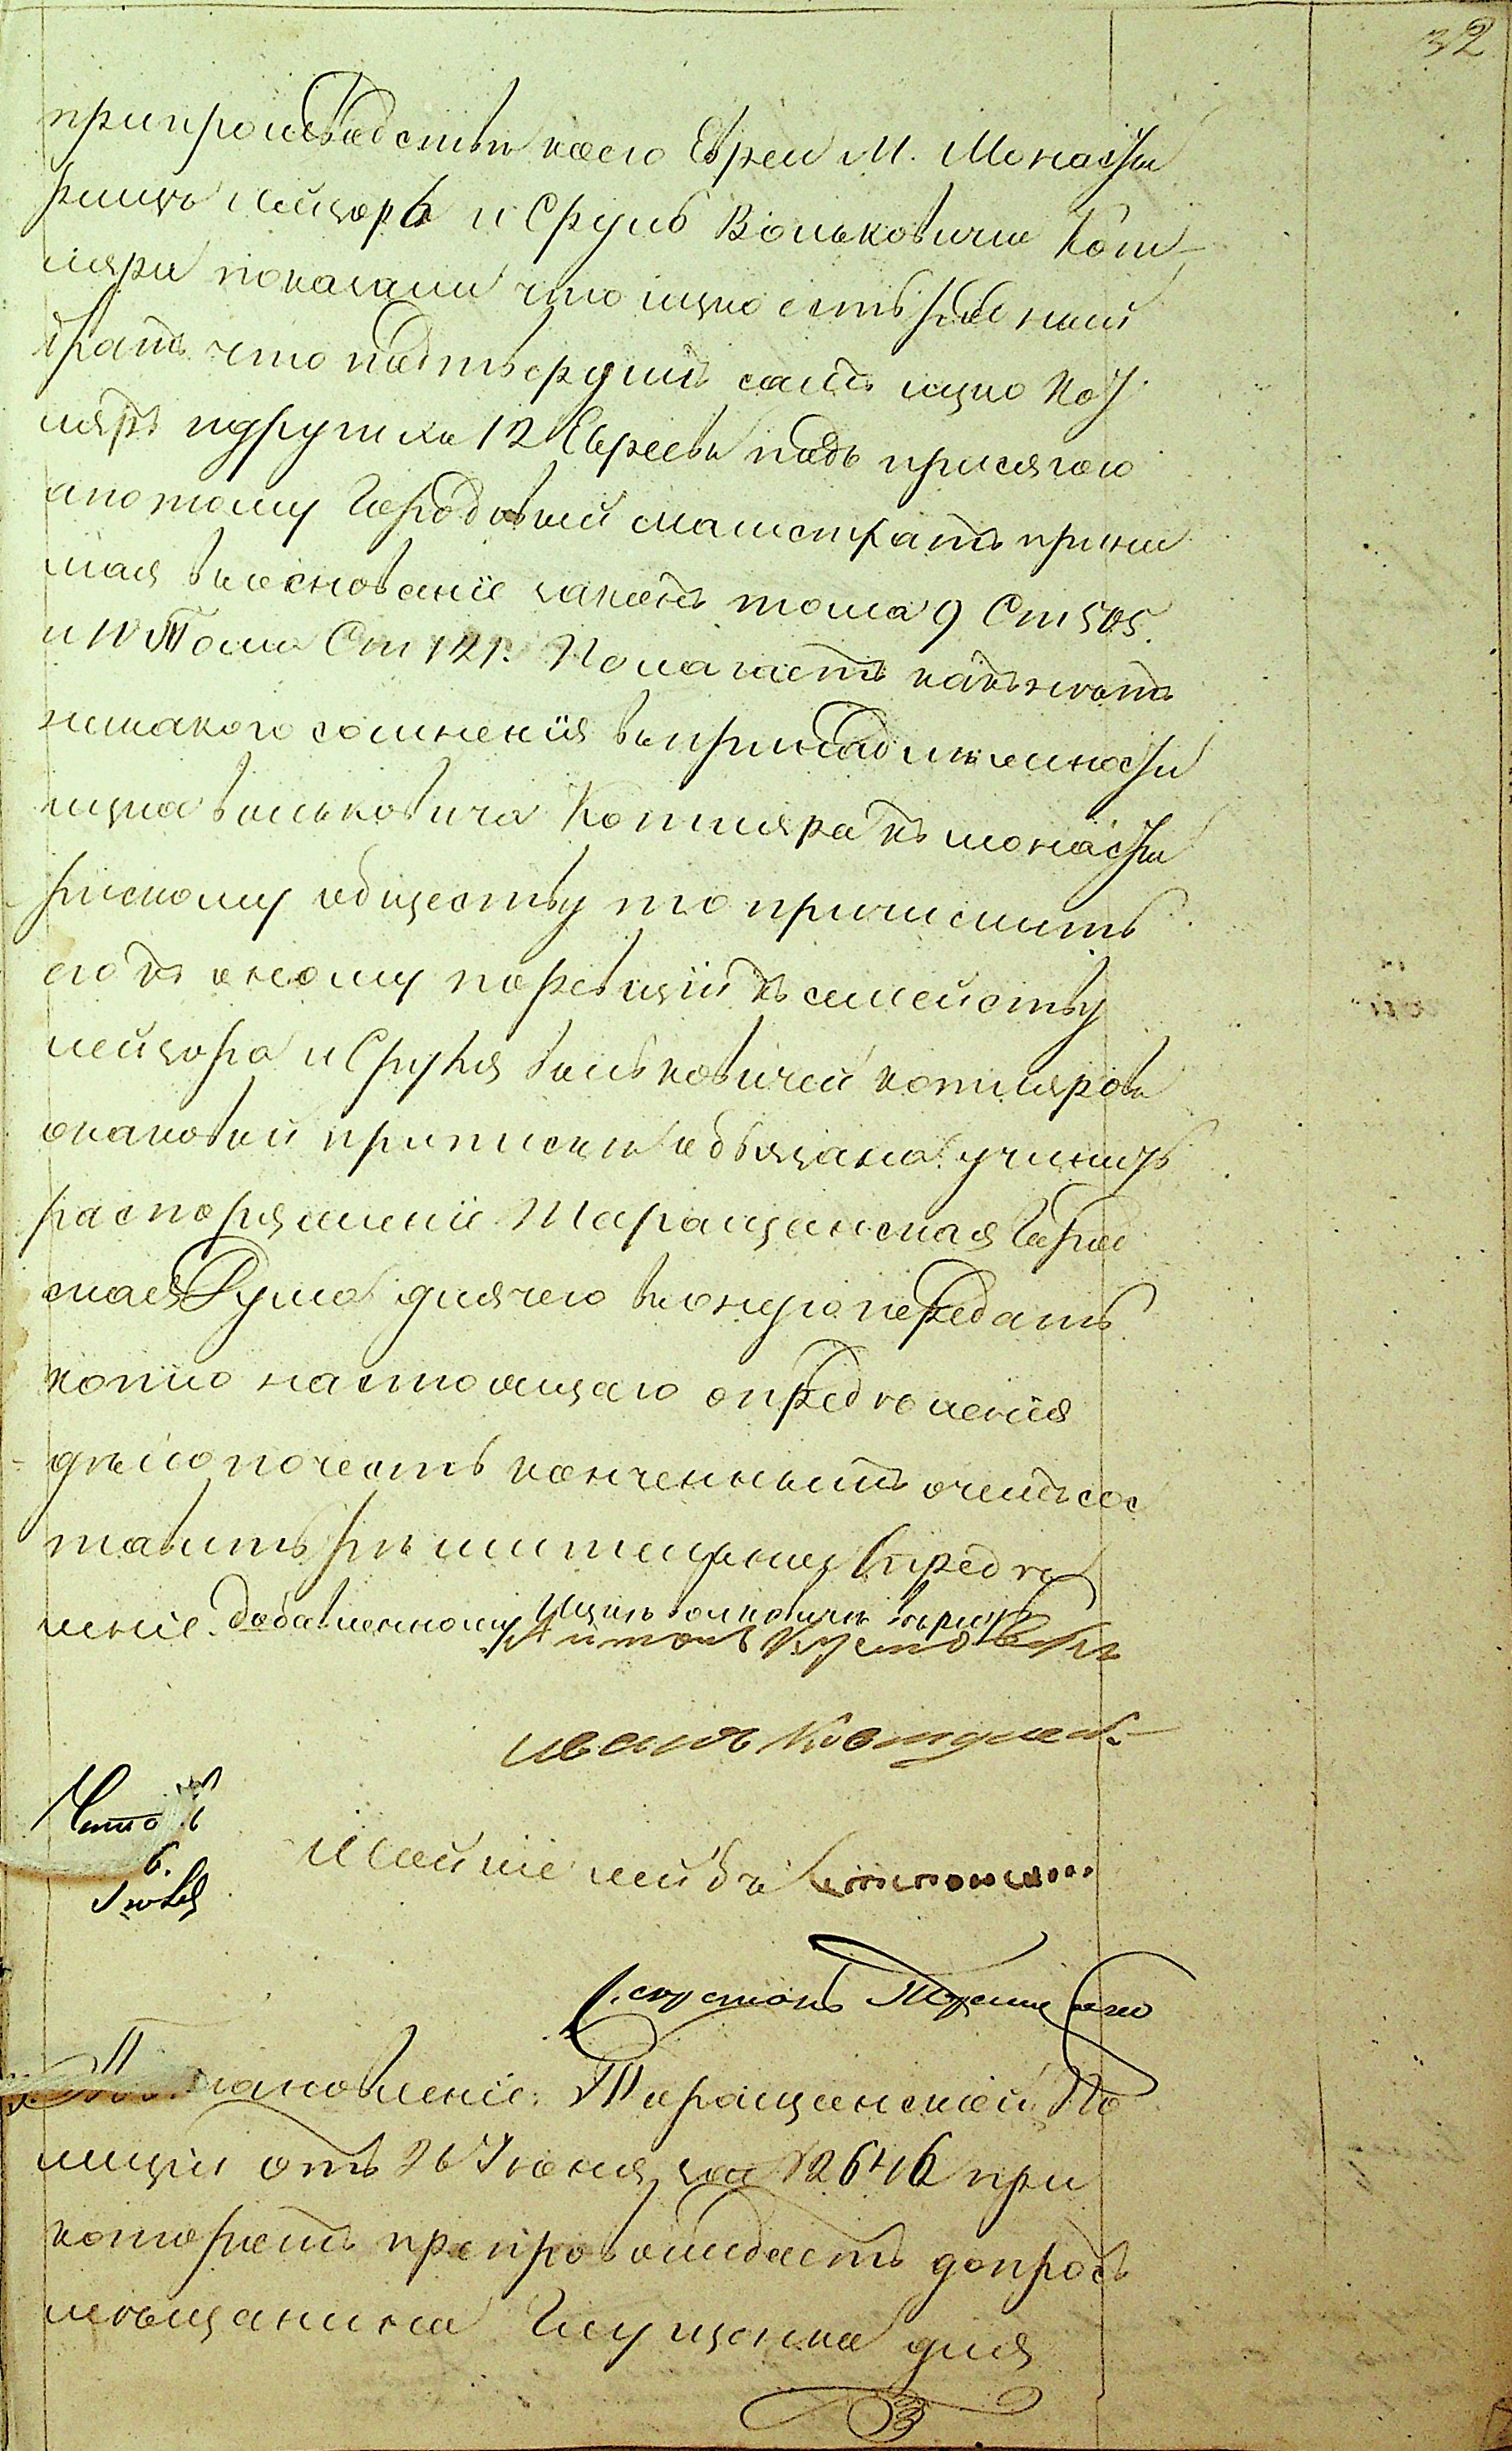 32
припроизводстве коего Евреи М. Монасты
рищъ Лейзоръ и Сруль Вольковичи Кот-
ляри показали что ицко есть родный
братъ что подтвердилъ самъ ицко Кот
ляръ идругихъ 12 Евреевъ подъ присягою
апотому Городовый магистратъ прини
мая въоснованіе законъ тома 9 Ст 505.
и IV Тома Ст 121. Полагаетъ какъ нетъ
никакого сомненія въпринадлежности
ицка вольковича Котляра къ монасты
рискому обществу то причислить
его къ оному поревизіи къ семейству
лейзора и Сруля вольковичей котляровъ
отаковой приписки обязана учинить
распоряженіе Таращанская Город
ская Дума длячего въоную передать
копію настоящаго определенія
дело почесть конченнымъ очемъ сос
тавить решительное Опреде
леніе. добавленному Ицикъ волковичъ верю
иванъ
6.
Лейба
становленіе Таращанской По
лиціи отъ 26 Іюня за № 2646 при
которомъ препровождаетъ допросъ
мещанина Глущенка для